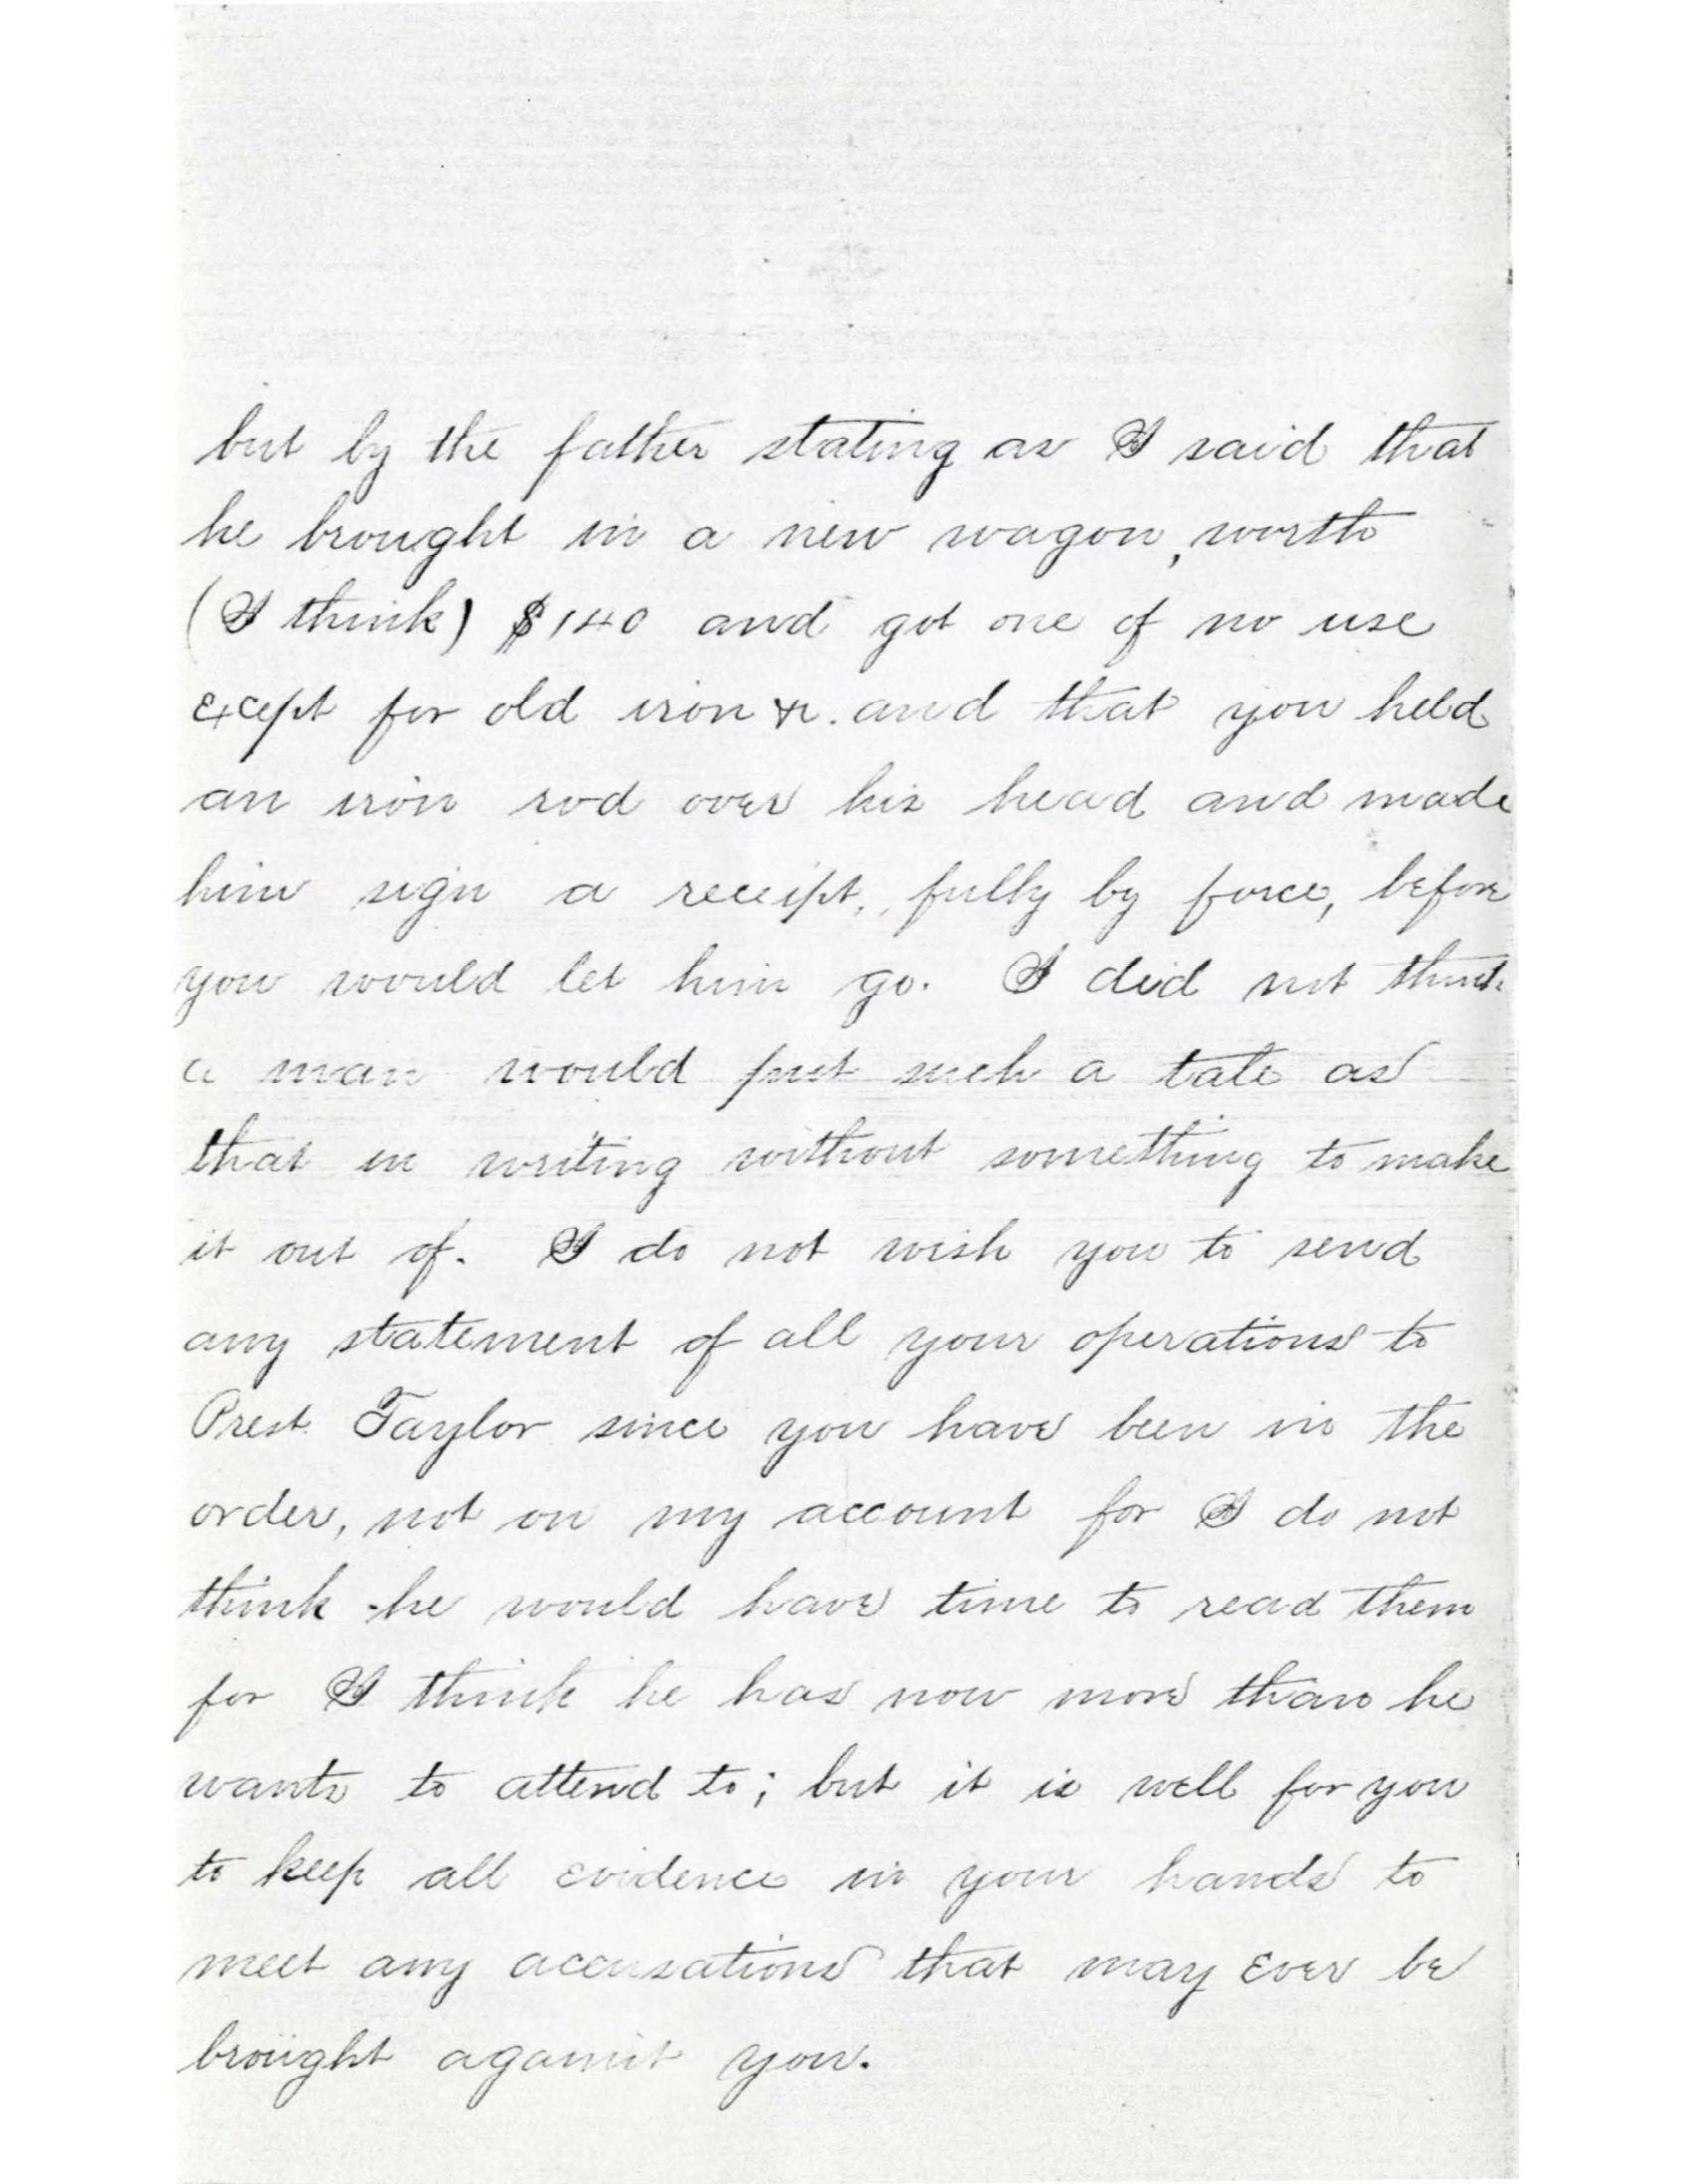 but by the father stating as I said that
he brought in a new wagon, worth
(I think) $140 and got one of no use
except for old iron &c. and that you held
an iron rod over his head and made
him sign a receipt, fully by force, before
you would let him go. I did not think
a man would put such a tale as
that in writing without something to make
it out of. I do not wish you to send
any statement of all your operations to
Prest. Taylor since you have been in the
order, not on my account for I do not
think he would have time to read them
for I think he has now more than he
wants to attend to; but it is well for you
to keep all evidence in your hands to
meet any accusations that may ever be
brought against you.